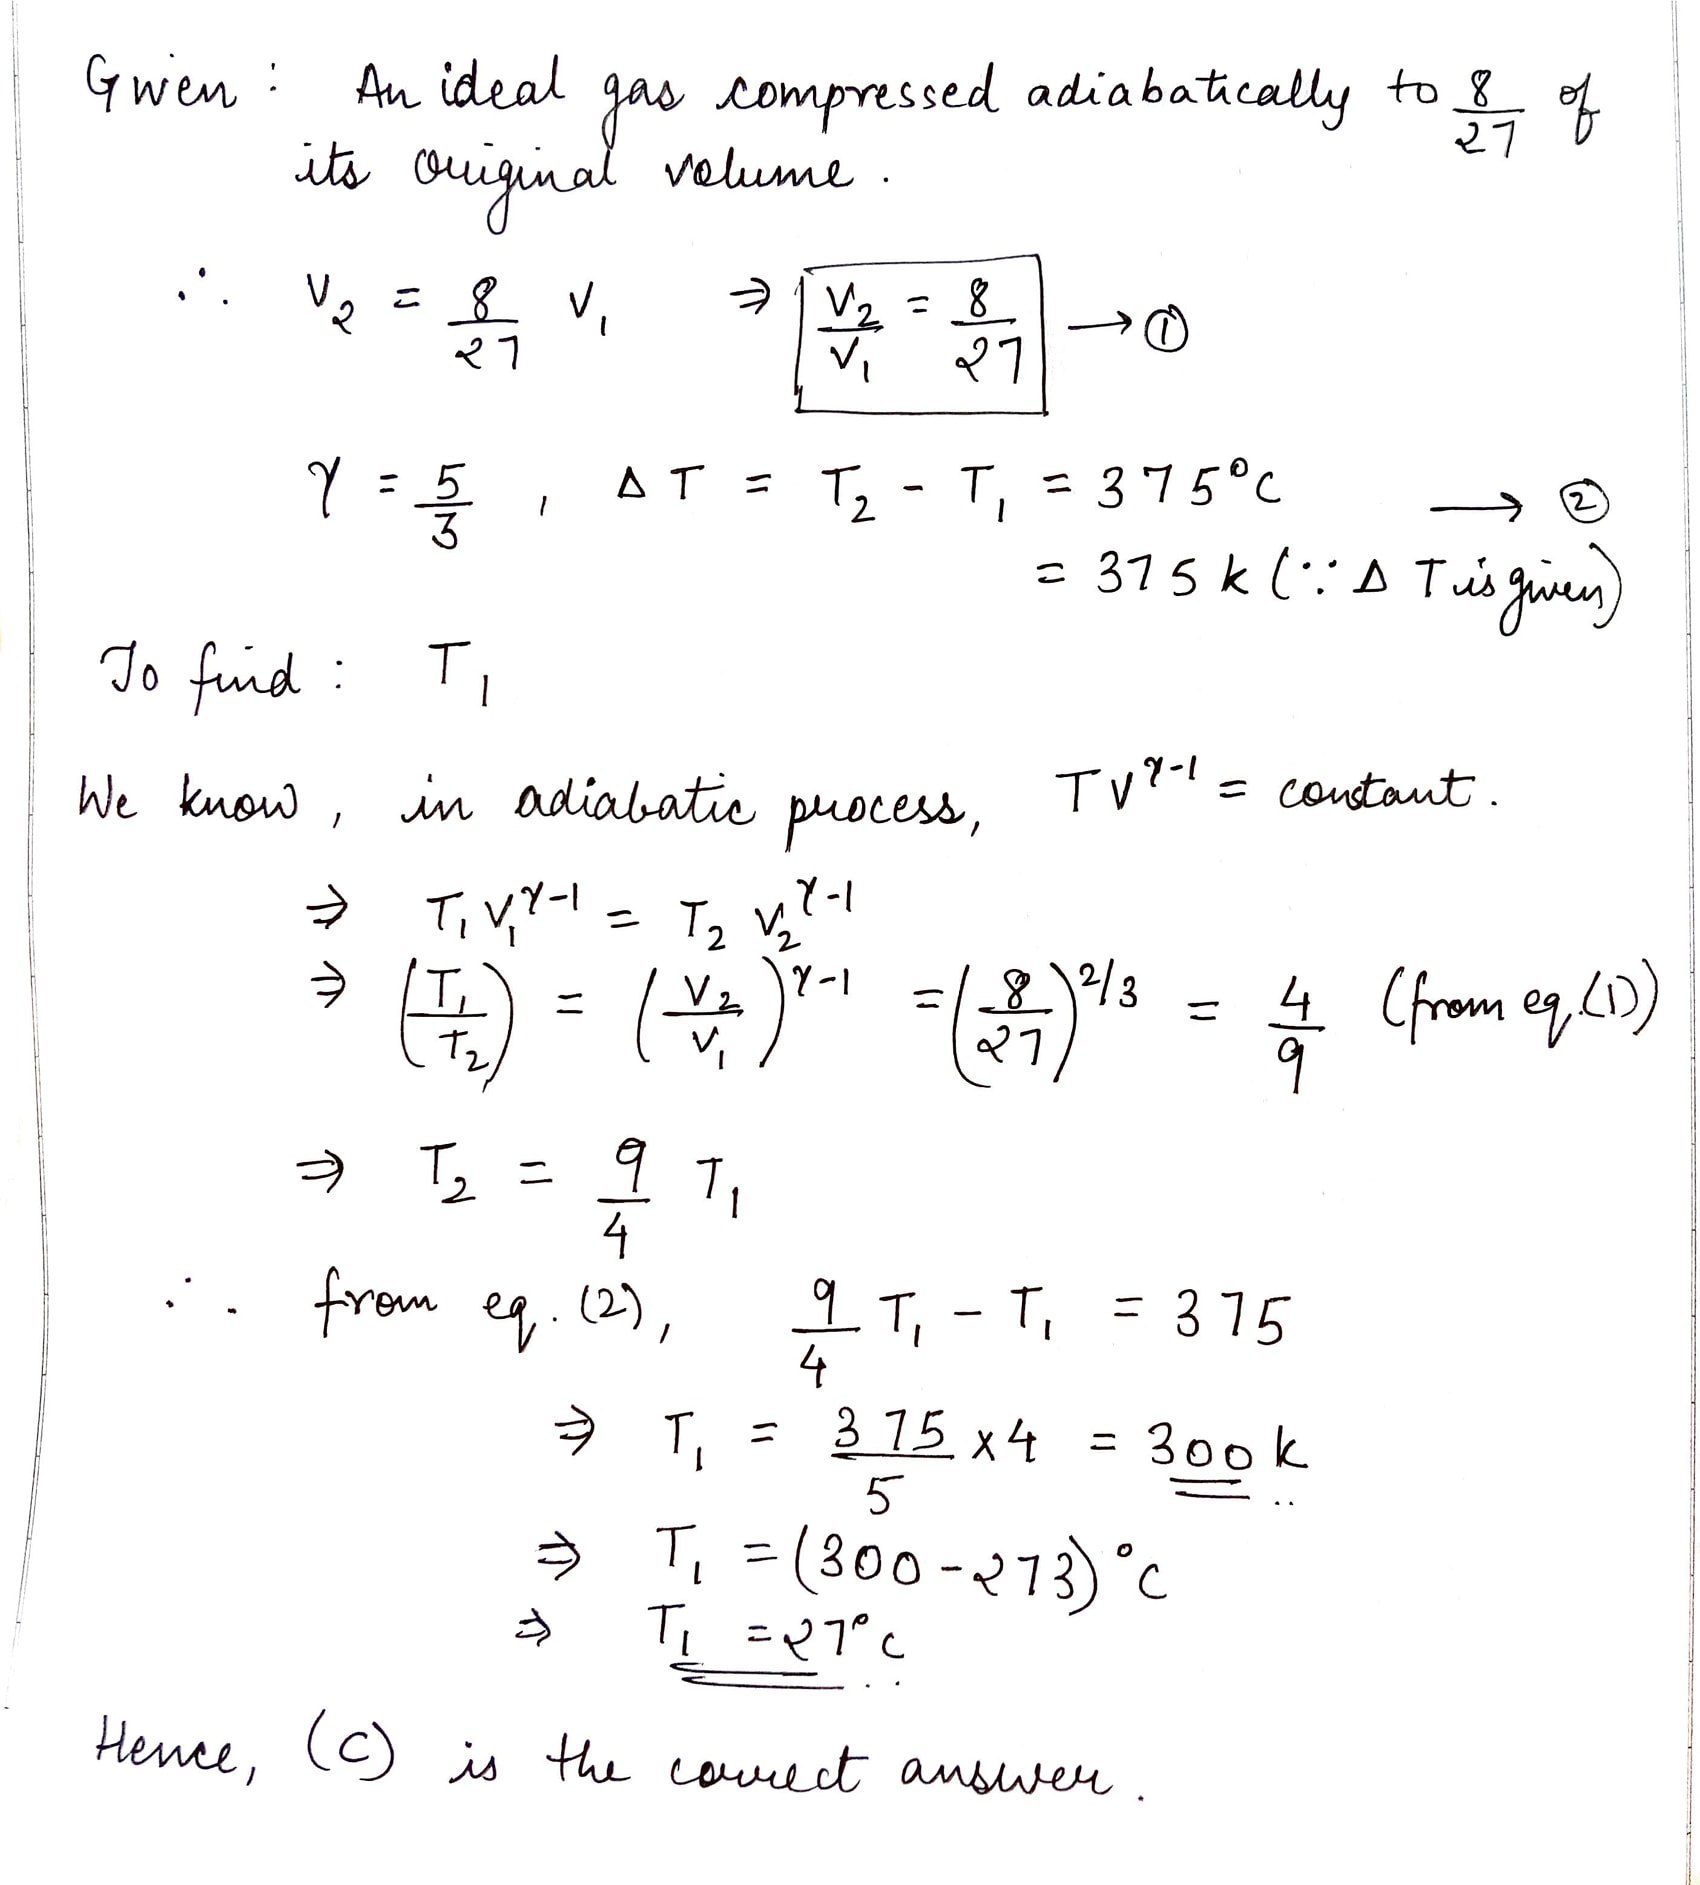 Given : An ideal gas compressed adiabatically to 8/27 of
its original volume.
∴ V₂ = 8/27 V₁ ⇒ V₂/V₁ = 8/27 → ①
γ = 5/3 , ΔT = T₂ - T₁ = 375°C → ②
= 375 k (∵ Δ T is given)
To find : T₁
We know, in adiabatic process, TV^(γ-1) = constant.
⇒ T₁ V₁^(γ-1) = T₂ V₂^(γ-1)
⇒ (T₁/T₂) = (V₂/V₁)^(γ-1) = (8/27)^(2/3) = 4/9 (from eq.(1))
⇒ T₂ = 9/4 T₁
∴ from eq. (2), 9/4 T₁ - T₁ = 375
⇒ T₁ = 375/5 x 4 = 300 k
⇒ T₁ = (300 - 273)°C
⇒ T₁ = 27°C
Hence, (C) is the correct answer.